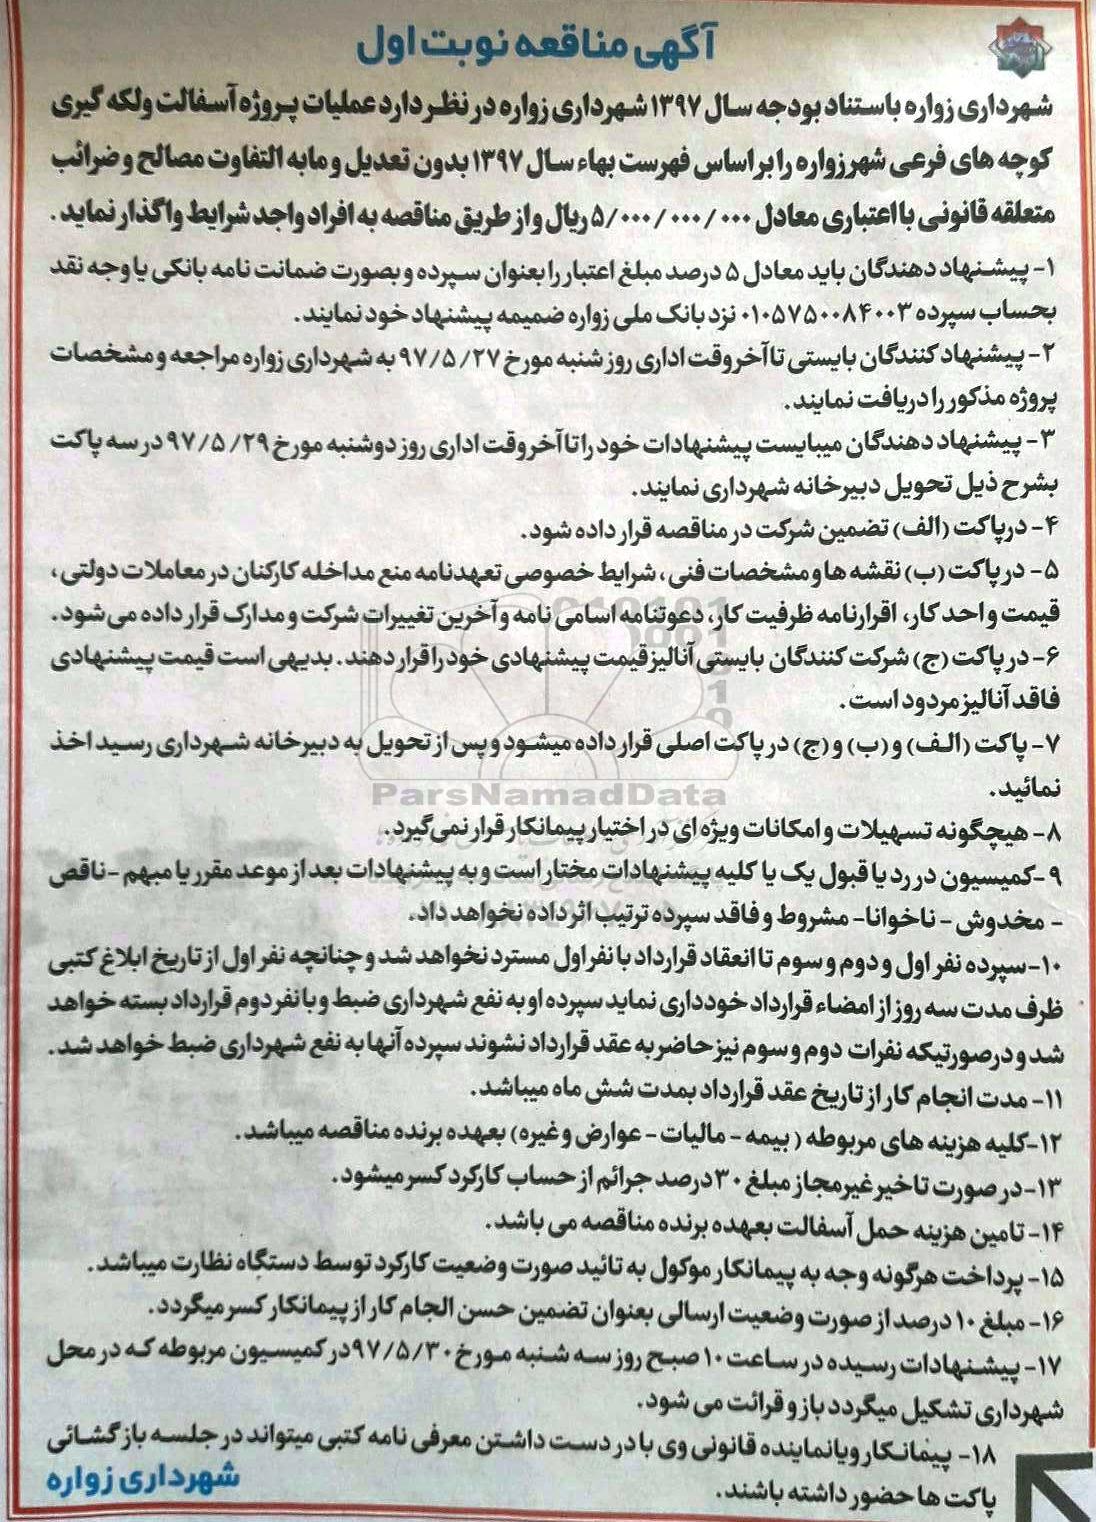 آگهی مناقصه نوبت اول
شهرداری زواره باستناد بودجه سال ۱۳۹۷ شهرداری زواره در نظر دارد عملیات پروژه آسفالت ولکه گیری
کوچه های فرعی شهر زواره را بر اساس فهرست بهاء سال ۱۳۹۷ بدون تعدیل و مابه التفاوت مصالح و ضرائب
متعلقه قانونی با اعتباری معادل ۵/۰۰۰/۰۰۰/۰۰۰ ریال و از طریق مناقصه به افراد واجد شرایط واگذار نماید.
۱- پیشنهاد دهندگان باید معادل ۵ درصد مبلغ اعتبار را بعنوان سپرده و بصورت ضمانت نامه بانکی یا وجه نقد
بحساب سپرده ۰۱۰۵۷۵۰۰۸۴۰۰۳ نزد بانک ملی زواره ضمیمه پیشنهاد خود نمایند.
۲- پیشنهاد کنندگان بایستی تا آخر وقت اداری روز شنبه مورخ ۹۷/۵/۲۷ به شهرداری زواره مراجعه و مشخصات
پروژه مذکور را دریافت نمایند.
۳- پیشنهاد دهندگان میبایست پیشنهادات خود را تا آخر وقت اداری روز دوشنبه مورخ ۹۷/۵/۲۹ در سه پاکت
بشرح ذیل تحویل دبیرخانه شهرداری نمایند.
۴- در پاکت (الف) تضمین شرکت در مناقصه قرار داده شود.
۵- در پاکت (ب) نقشه ها و مشخصات فنی، شرایط خصوصی تعهدنامه منع مداخله کارکنان در معاملات دولتی،
قیمت واحد کار، اقرارنامه ظرفیت کار، دعوتنامه اسامی نامه و آخرین تغییرات شرکت و مدارک قرار داده می شود.
۶- در پاکت (ج) شرکت کنندگان بایستی آنالیز قیمت پیشنهادی خود را قرار دهند. بدیهی است قیمت پیشنهادی
فاقد آنالیز مردود است.
۷- پاکت (الف) و (ب) و (ج) در پاکت اصلی قرار داده میشود و پس از تحویل به دبیرخانه شهرداری رسید اخذ
نمائید.
ParsNamadData
۸- هیچگونه تسهیلات و امکانات ویژه ای در اختیار پیمانکار قرار نمی گیرد.
۹- کمیسیون در رد یا قبول یک یا کلیه پیشنهادات مختار است و به پیشنهادات بعد از موعد مقرر یا مبهم - ناقص
- مخدوش - ناخوانا - مشروط و فاقد سپرده ترتیب اثر داده نخواهد داد.
۱۰- سپرده نفر اول و دوم و سوم تا انعقاد قرارداد با نفر اول مسترد نخواهد شد و چنانچه نفر اول از تاریخ ابلاغ کتبی
ظرف مدت سه روز از امضاء قرارداد خودداری نماید سپرده او به نفع شهرداری ضبط و با نفر دوم قرارداد بسته خواهد
شد و در صورتیکه نفرات دوم و سوم نیز حاضر به عقد قرارداد نشوند سپرده آنها به نفع شهرداری ضبط خواهد شد.
۱۱- مدت انجام کار از تاریخ عقد قرارداد بمدت شش ماه میباشد.
۱۲- کلیه هزینه های مربوطه (بیمه - مالیات - عوارض و غیره) بعهده برنده مناقصه میباشد.
۱۳- در صورت تاخیر غیر مجاز مبلغ ۳۰ درصد جرائم از حساب کارکرد کسر میشود.
۱۴- تامین هزینه حمل آسفالت بعهده برنده مناقصه می باشد.
۱۵- پرداخت هرگونه وجه به پیمانکار موکول به تائید صورت وضعیت کارکرد توسط دستگاه نظارت میباشد.
۱۶- مبلغ ۱۰ درصد از صورت وضعیت ارسالی بعنوان تضمین حسن الجام کار از پیمانکار کسر میگردد.
۱۷- پیشنهادات رسیده در ساعت ۱۰ صبح روز سه شنبه مورخ ۹۷/۵/۳۰ در کمیسیون مربوطه که در محل
شهرداری تشکیل میگردد باز و قرائت می شود.
۱۸- پیمانکار ویا نماینده قانونی وی با در دست داشتن معرفی نامه کتبی میتواند در جلسه بازگشائی
پاکت ها حضور داشته باشند.
شهرداری زواره